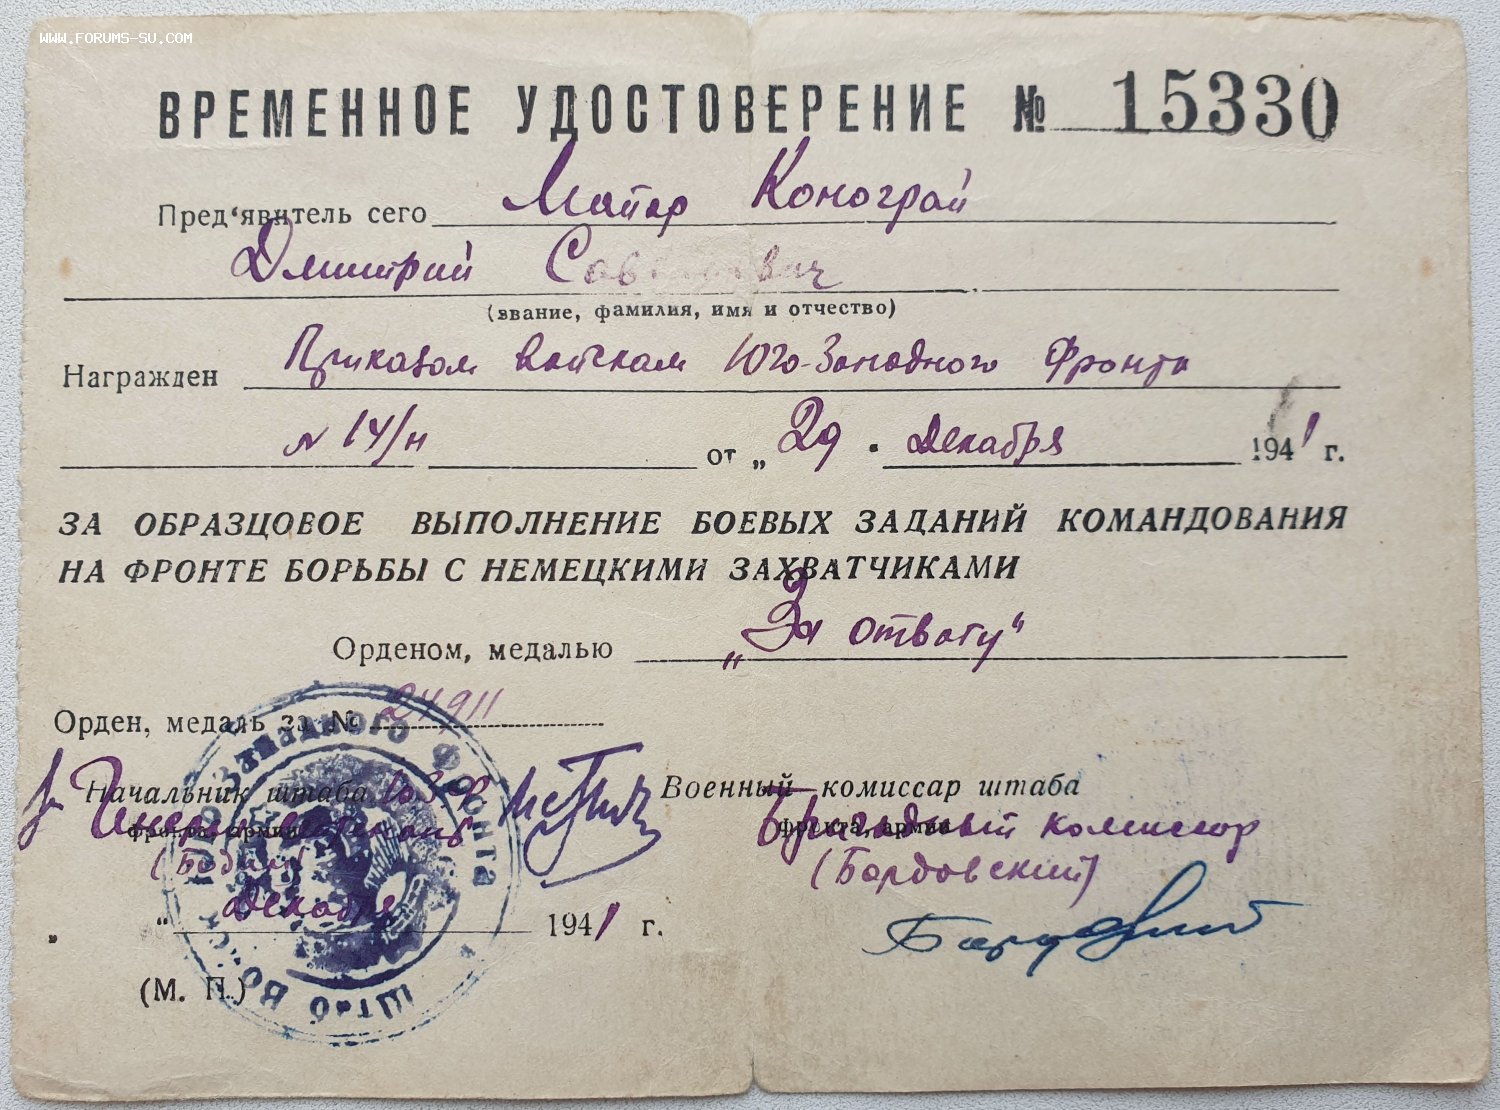 WWW.FORUMS-SU.COM
ВРЕМЕННОЕ УДОСТОВЕРЕНИЕ № 15330
Пред'явитель сего Майор Коноград
Дмитрий
(звание, фамилия, имя и отчество)
Награжден Приказом войскам Юго-Западного Фронта
№ 14/н от „ 29 " Декабря 1941 г.
ЗА ОБРАЗЦОВОЕ ВЫПОЛНЕНИЕ БОЕВЫХ ЗАДАНИЙ КОМАНДОВАНИЯ
НА ФРОНТЕ БОРЬБЫ С НЕМЕЦКИМИ ЗАХВАТЧИКАМИ
Орденом, медалью „За отвагу"
Орден, медаль за № 24911
Начальник штаба ЮЗФ Военный комиссар штаба
фронта, армии фронта, армии
Бригадный комиссар
(Бодин) (Бордовский)
„ " Декабря 1941 г.
(М. П.)
Штаб Войск Юго-Западного Фронта